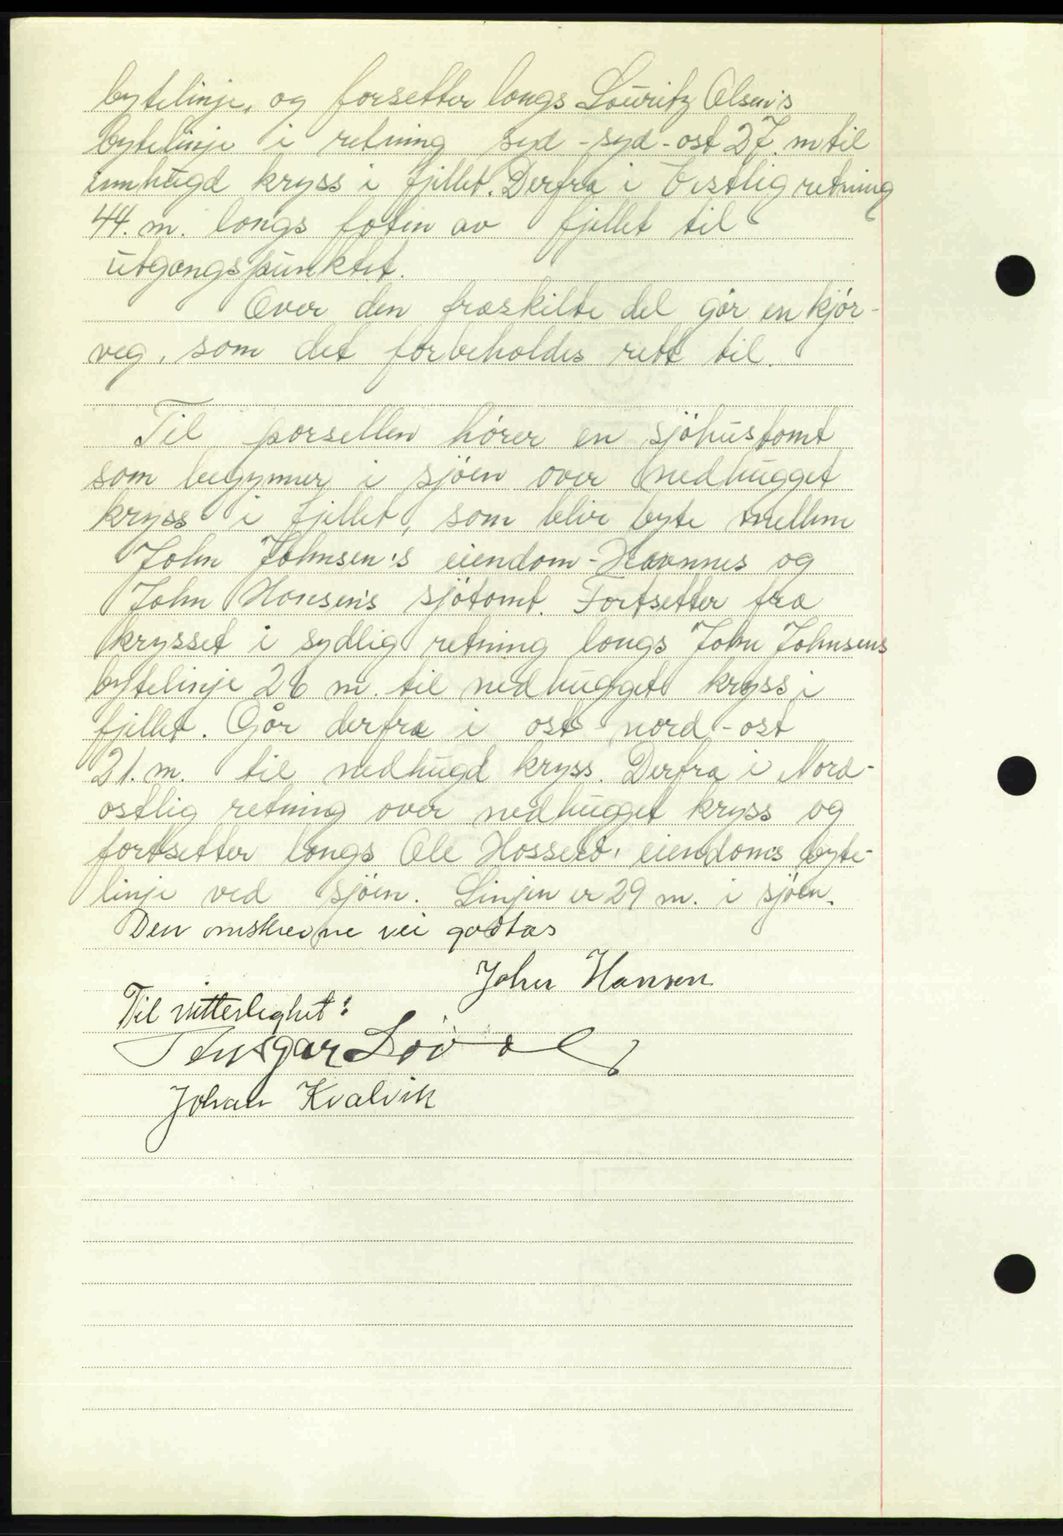 bytelinje, og forsetter langs Lauritz Olsen's
bytelinje i retning syd-syd-ost 27. m til
innhugd kryss i fjillet. Derfra i Vestlig retning
44. m. langs foten av fjillet til
utgangspunktet.
Over den fraskilte del går en kjör-
veg, som det forbeholdes rett til.
Til parsellen hörer en sjöhustomt
som begynner i sjöen over nedhugget
kryss i fjillet, som blir byte mellem
John Johnsen's eiendom-Havnnes og
John Hansen's sjötomt. Fortsetter fra
krysset i sydlig retning langs John Johnsens
bytelinje 26 m. til nedhugget kryss i
fjillet. Går derfra i ost nord-ost
21. m. til nedhugd kryss. Derfra i Nord-
ostlig retning over nedhugget kryss og
fortsetter langs Ole eiendoms byte-
linje ved sjöen. Linjen er 29 m. i sjöen.
Den omskrevne vei godtas
John Hansen
Til vitterlighet:
Johan Kvalvik